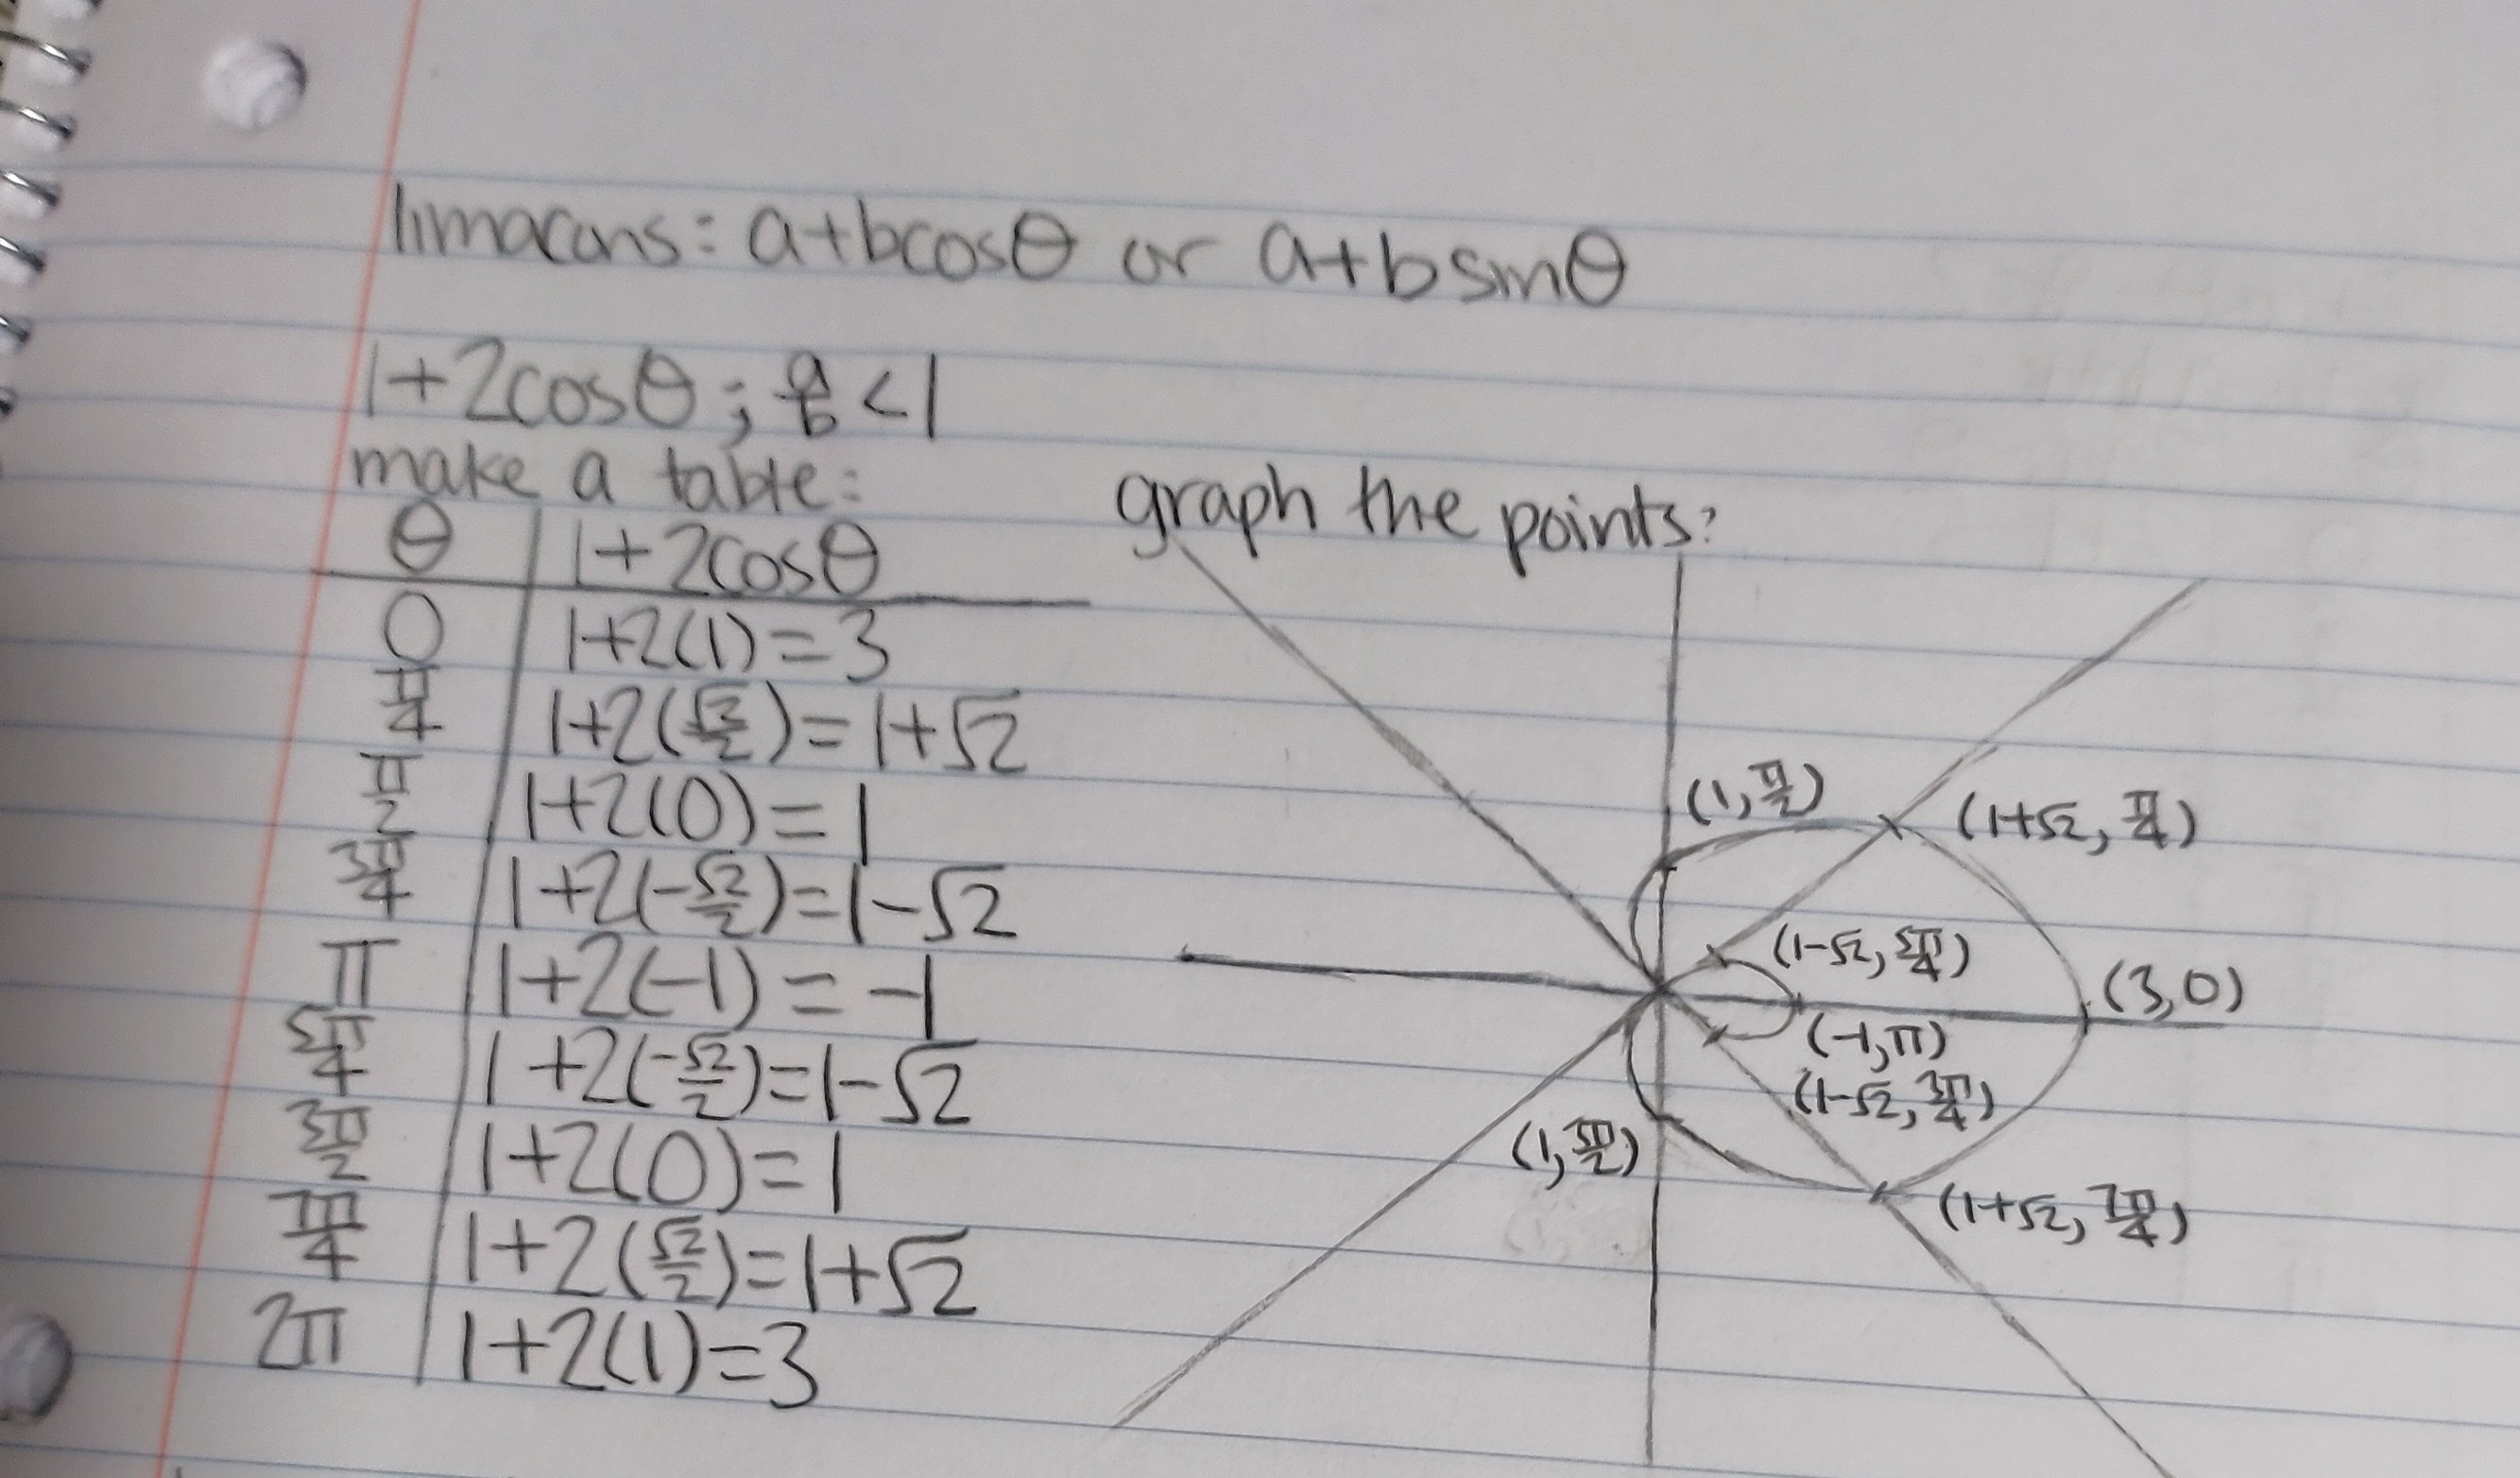 limacons: a+bcosθ or a+bsinθ
1+2cosθ; a/b <1
make a table:
θ | 1+2cosθ
0 | 1+2(1)=3
π/4 | 1+2(√2/2)=1+√2
π/2 | 1+2(0)=1
3π/4 | 1+2(-√2/2)=1-√2
π | 1+2(-1)=-1
5π/4 | 1+2(-√2/2)=1-√2
3π/2 | 1+2(0)=1
7π/4 | 1+2(√2/2)=1+√2
2π | 1+2(1)=3
graph the points:
(1, π/2)
(1+√2, π/4)
(1-√2, 5π/4)
(3,0)
(-1,π)
(1-√2, 3π/4)
(1, 3π/2)
(1+√2, 7π/4)